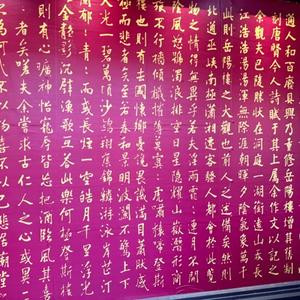 通人和百廢具興乃重修岳陽樓增其舊制
刻唐賢今人詩賦于其上屬余作文以記之
余觀夫巴陵勝狀在洞庭一湖銜遠山吞長
江浩浩湯湯渾無際涯朝暉夕陰氣象萬千
此則岳陽樓之大觀也前人之述備矣然則
北通巫峽南極瀟湘遷客騷人多會於此覽
物之情得無異乎若夫淫雨霏:連月不開
陰風怒號濁浪排空日星隱耀山嶽潛形商
旅不行檣傾楫摧薄暮冥:虎嘯猿啼登斯
樓也則有去國懷鄉憂讒畏譏滿目蕭然感
極而悲者矣至若春和景明波瀾不驚上下
天光一碧萬頃沙鷗翔集錦鱗游泳岸芷汀
蘭郁:青:而或長煙一空皓月千里浮光
躍金靜影沉璧漁歌互答此樂何極登斯樓
則有心曠神怡寵辱皆忘把酒臨風其喜
者矣嗟夫余嘗求古仁人之心或異二
哉不以物喜不以己悲居廟堂